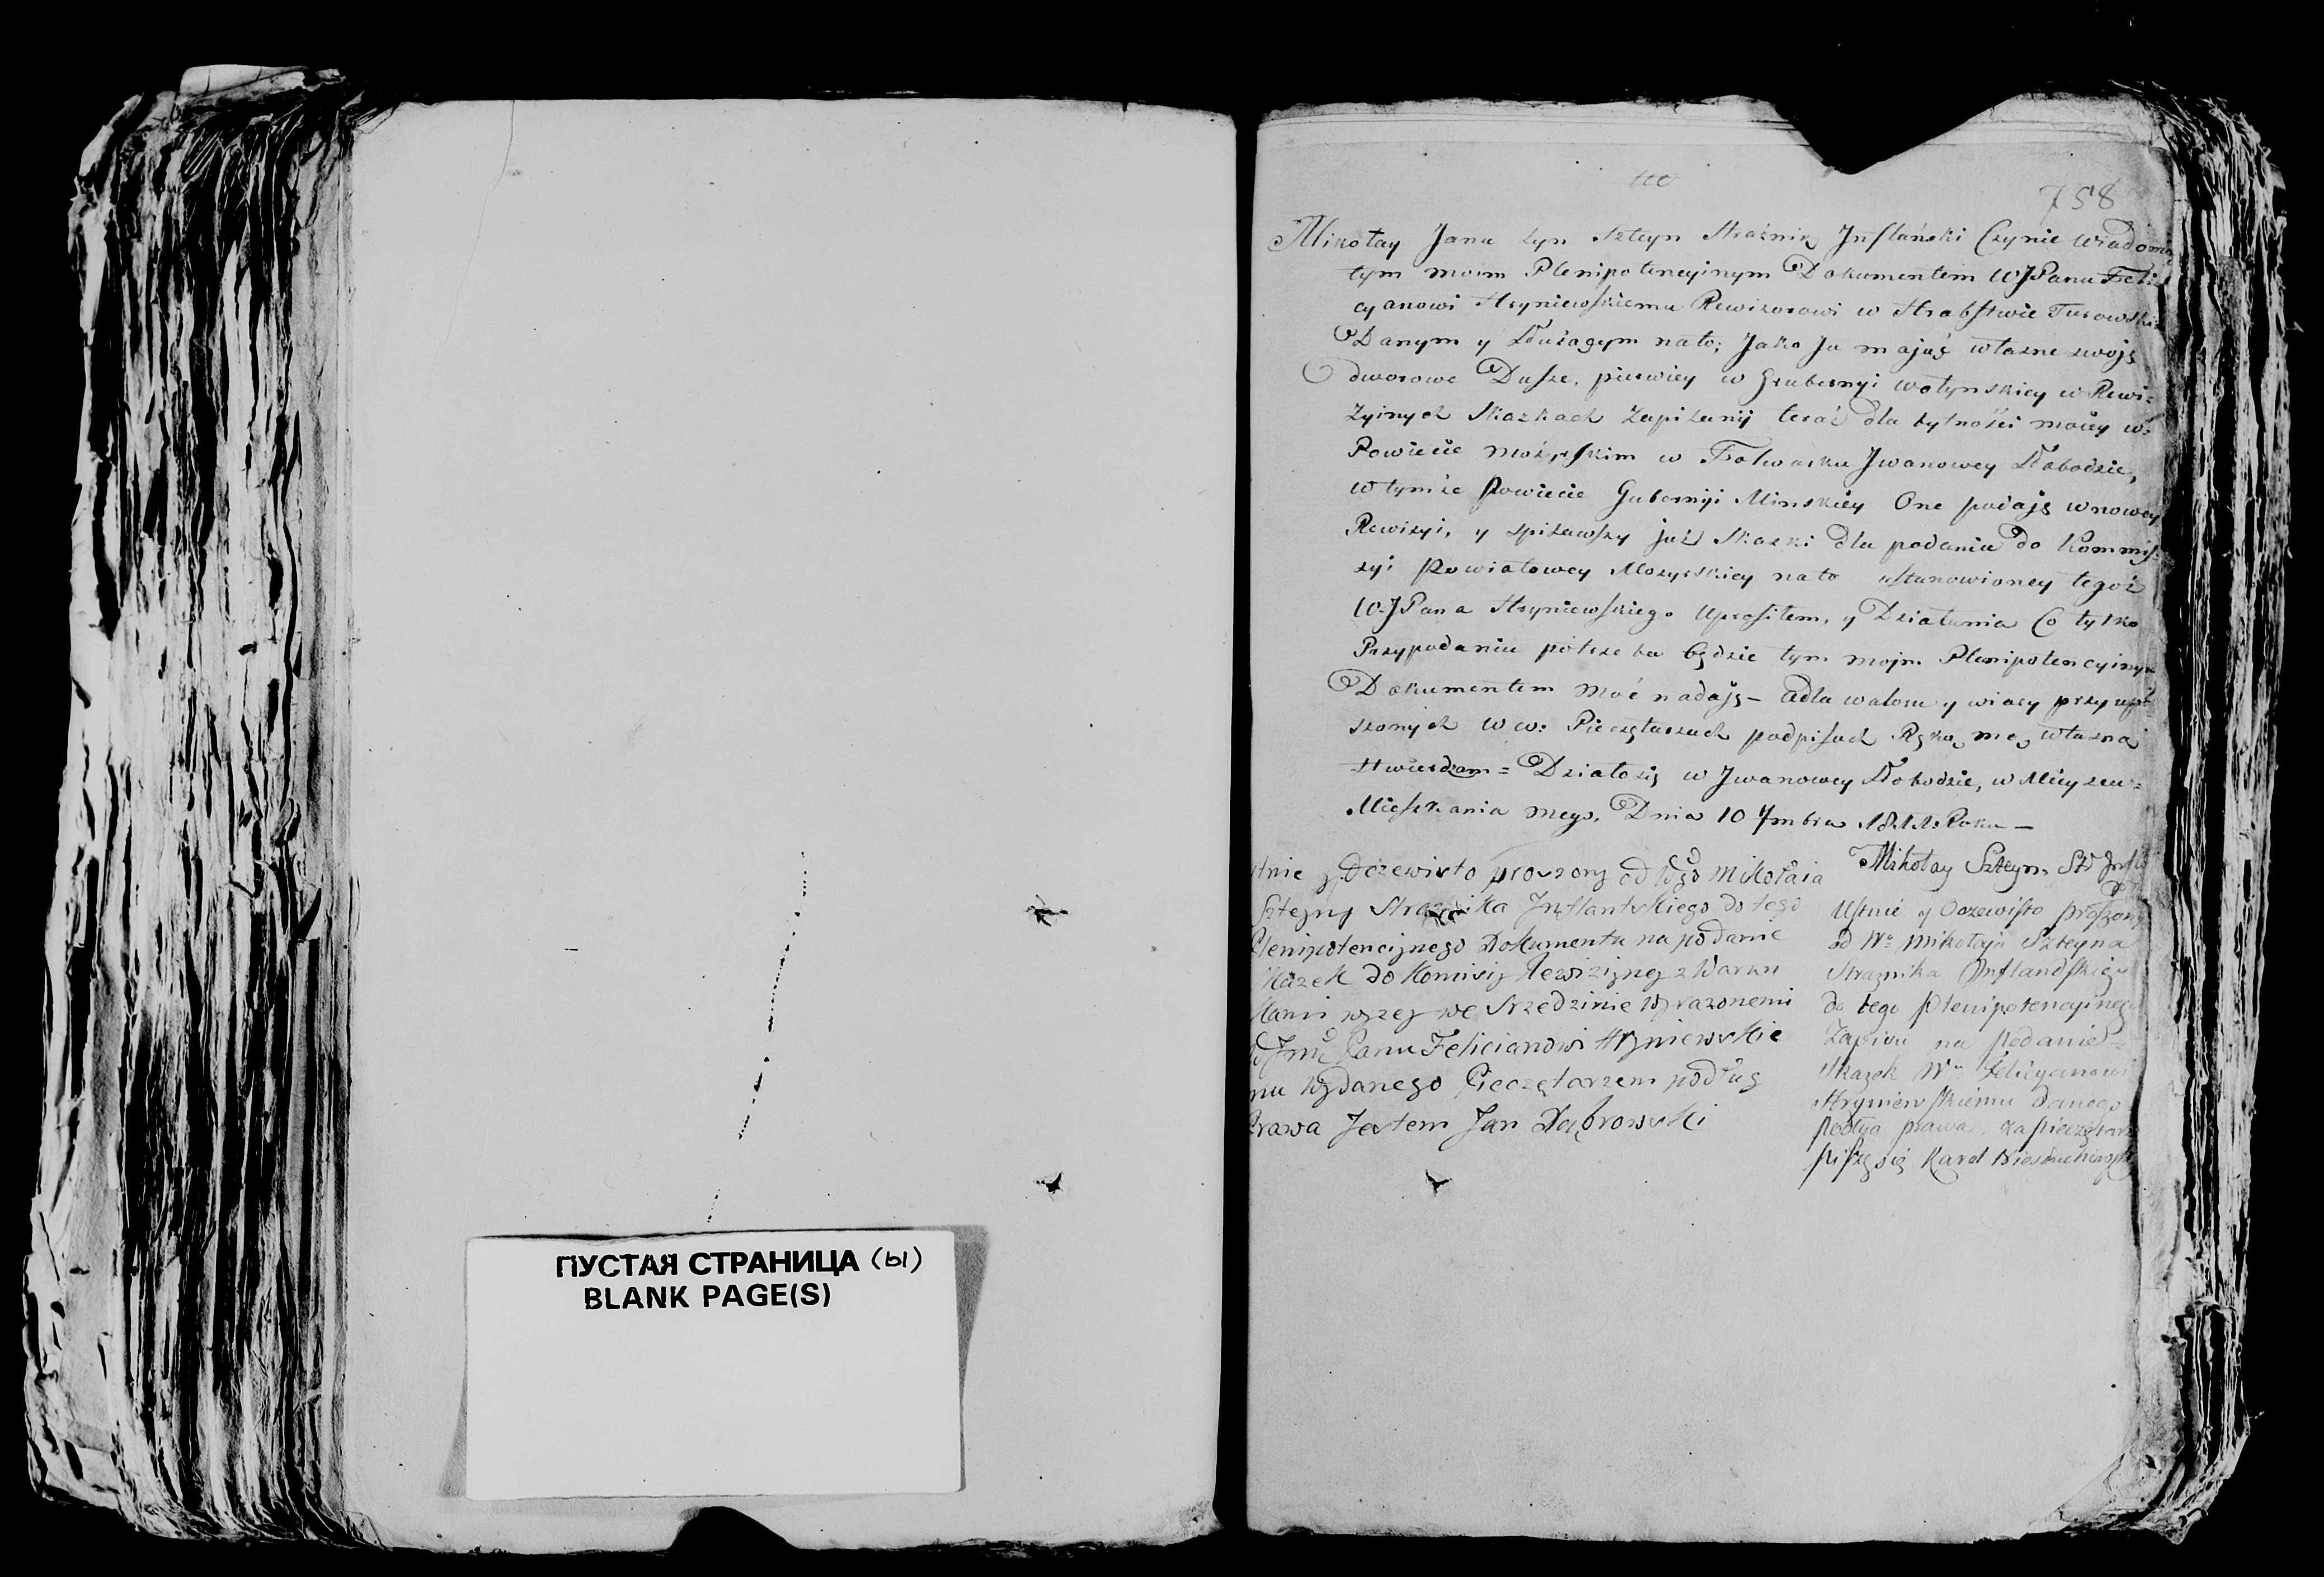 ПУСТАЯ СТРАНИЦА (ы)
BLANK PAGE(S)
758
Mikołay Jana syn Szteyn Strażnik Inflański Czynie wiadomo
tym moim Plenipotencyinym Dokumentem WJPanu Feli
cyanowi Hryniewskiemu Rewizorowi w Hrabstwie Turowskim
Danym y Służącym na to; Jako Ja mając własne swoje
dworowe Dusze, pierwiey w Gubernyi wołynskiey w Rewi-
zyinych Skazkach zapisanij teraz dla bytności moiey w
Powiecie mozyrskim w Folwarku Jwanowey Słobodzie,
w tymże Powiecie Gubernji Minskiey One podaję w nowey
Rewizyi, y spisawszy już Skazki dla podania do Kommis-
syi Powiatowey Mozyrskiey na to ustanowioney tegoż
WJPana Hryniewskiego uprosiłem, y Działania Co tylko
Przypodaniu potrzeba będzie tym mojm Plenipotencyinym
Dokumentem moć nadaję - a dla waloru y wiary przy upro-
szonych W w: Pieczętarzach podpisach Ręką mą własną
stwierdzam = Działo się w Jwanowey Słobodzie, w Mieyscu
Mieszkania mego, Dnia 10 7mbra 1811 Roku —
Mikołay Szteyn
ustnie y Oczewisto proszony od Wgo Mikołaia
Szteyny Straznika Inflantskiego do tego
Plenipotencijnego Dokumentu na podanie
Skazek do Komisij Rewizijney z Warun
kami wyzey we Srzedzinie wyrazonemi
Jmć Panu Felicianowi Hryniewskie
mu wydanego Pieczętarzem podług
Prawa Jestem Jan Dąbrowski
Ustnie y Oczewisto proszony
od Wo Mikołaja Szteyna
Straznika Inflandskiego
do tego Plenipotencyinego
Zapisu na podanie
Skazek Wmu Felicyanowi
Hryniewskiemu danego
podług prawa za pieczętarza
piszę się Karol